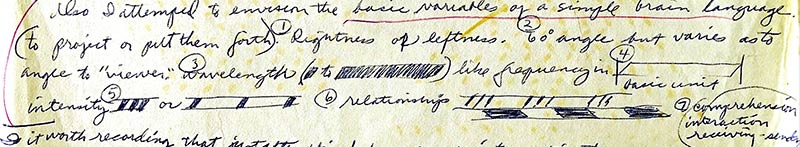 Also I attempted to envision the basic variables of a simple brain language.
(to project or put them forth). ① Rightness or leftness. ② 60° angle but varies as to
angle to "viewer." ③ Wavelength ( to ) like frequency in ④ basic unit
intensity ⑤ or ⑥ relationships ⑦ comprehension
interaction
receiving-sending
it worth recording that just after this